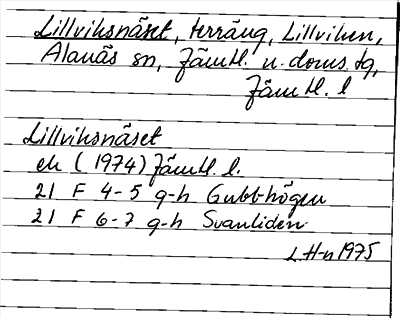 Lillviksnäset, terräng, Lillviken,
Alanäs sn, Jämtl. n. doms. tg,
Jämtl. l
Lillviksnäset
ek (1974) Jämtl. l.
21 F 4-5 g-h Gubbhögen
21 F 6-7 g-h Svanliden
L H-n 1975